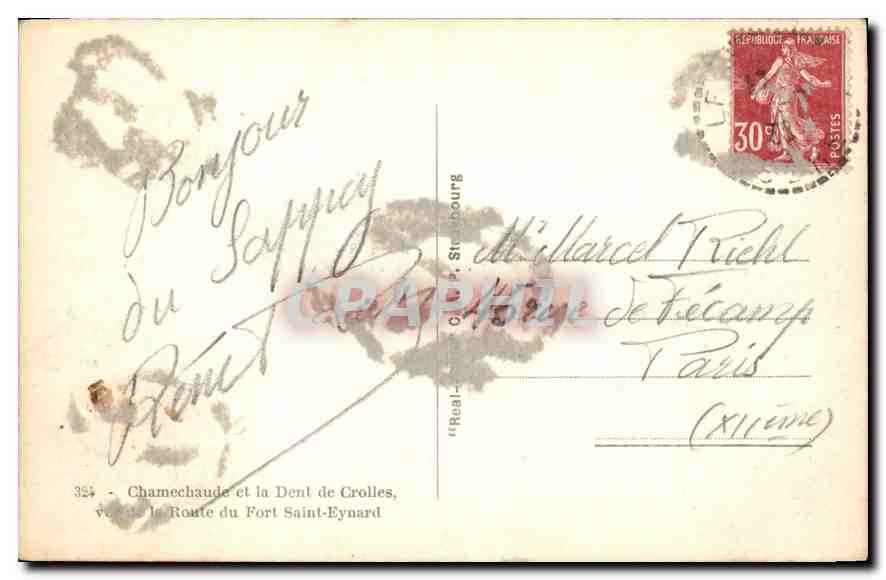 Bonjour
du Sappey
324 - Chamechaude et la Dent de Crolles,
vue de la Route du Fort Saint-Eynard
"Real- C. A. P, Strasbourg
RÉPUBLIQUE FRANÇAISE
30c
POSTES
LE
Mr Marcel Riehl
rue de Fécamp
Paris
(XIIème)
CPAPHIL